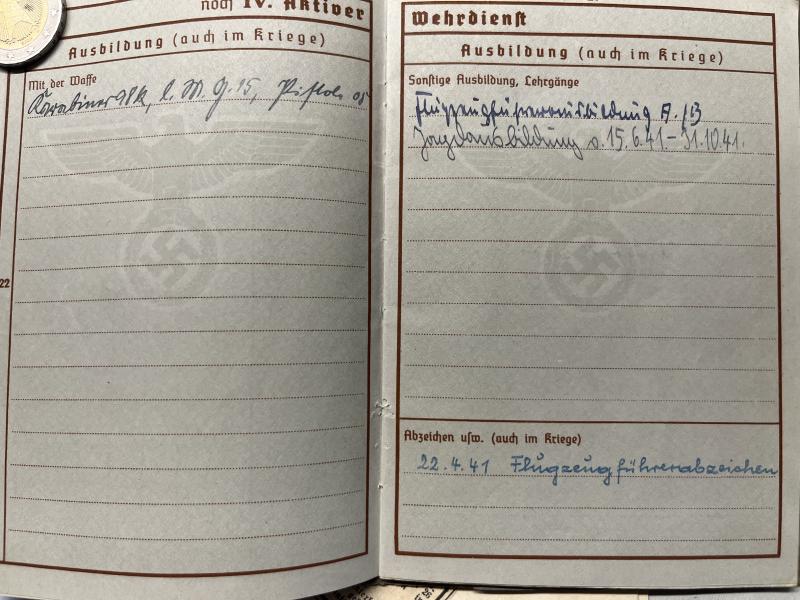 noch IV. Aktiver
Ausbildung (auch im Kriege)
Mit der Waffe
Karabiner 98k, l. M. G. 15, Pistole 08
22
Wehrdienst
Ausbildung (auch im Kriege)
Sonstige Ausbildung, Lehrgänge
Flugzeugführerausbildung A/B
Jagdausbildung v. 15.6.41-31.10.41.
Abzeichen usw. (auch im Kriege)
22.4.41 Flugzeugführerabzeichen